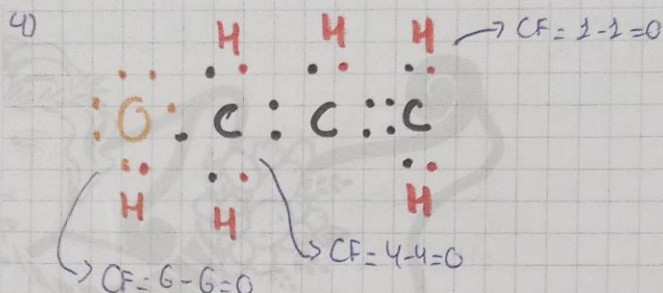 4)
H H H → CF = 1-1=0
:O:C:C::C
H H H
→ CF=4-4=0
→ CF=6-6=0